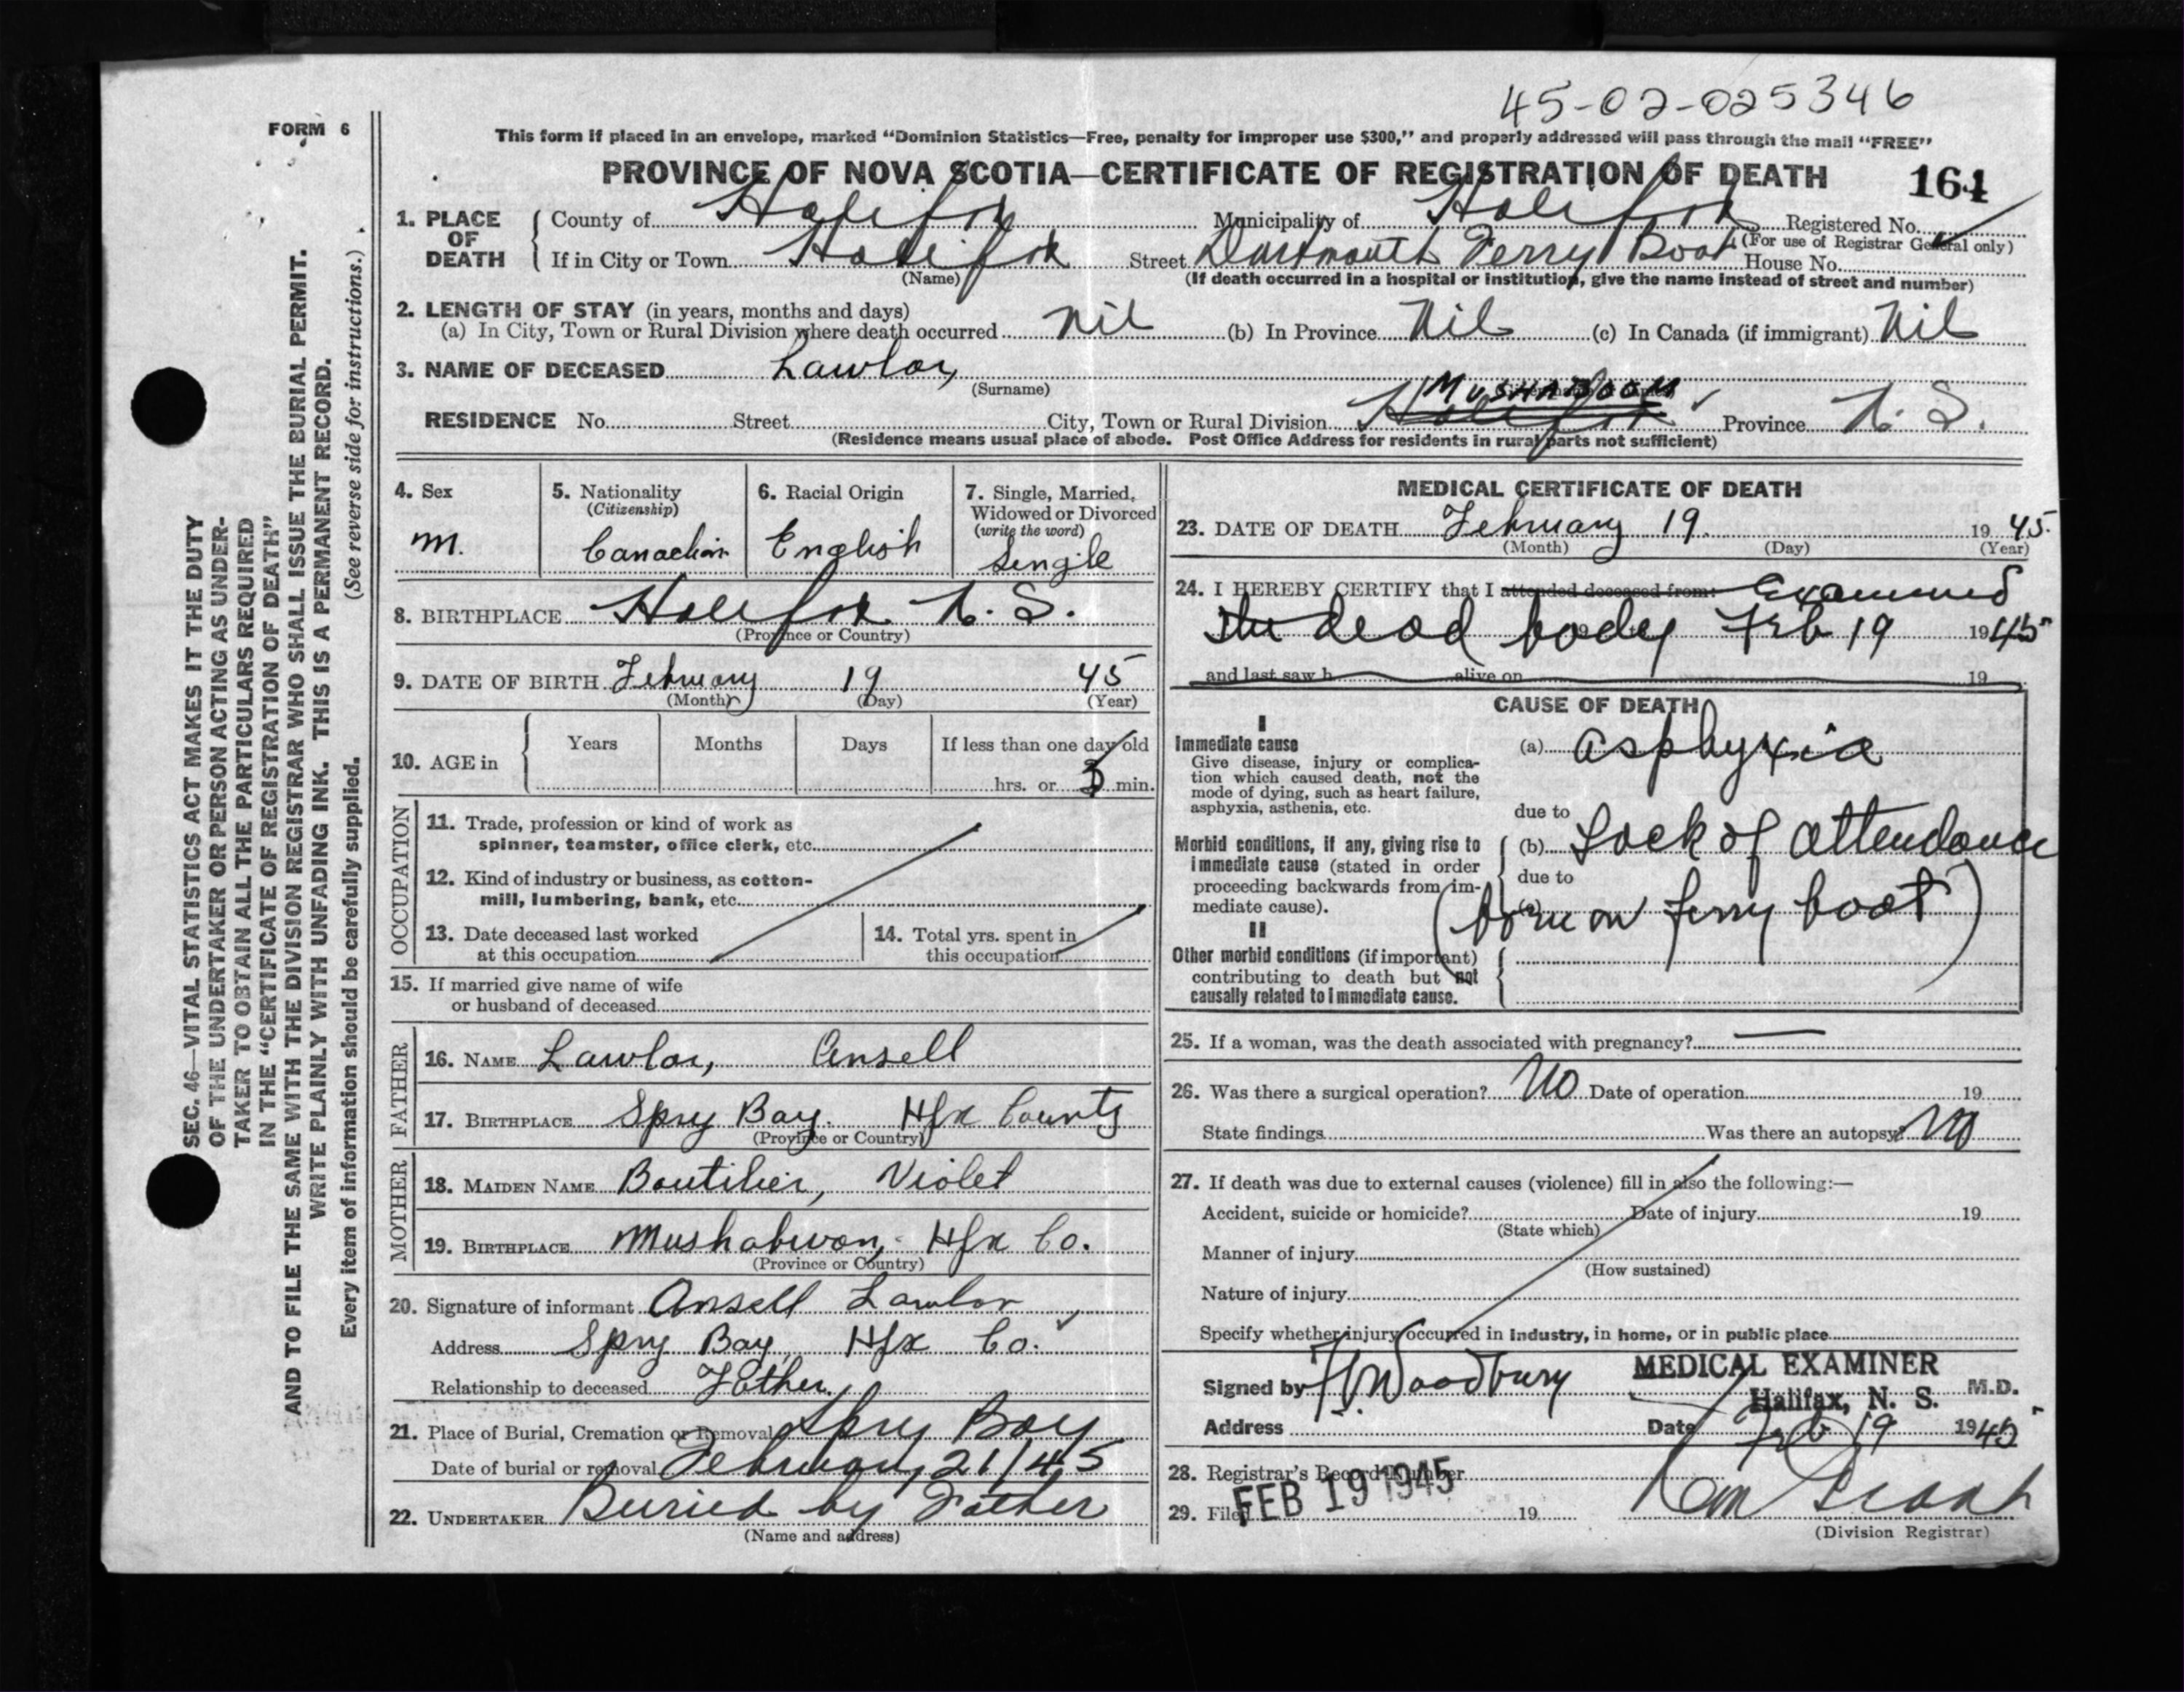 45-02-025346
FORM 6
This form if placed in an envelope, marked "Dominion Statistics—Free, penalty for improper use $300," and properly addressed will pass through the mail "FREE"
PROVINCE OF NOVA SCOTIA—CERTIFICATE OF REGISTRATION OF DEATH 164
1. PLACE OF DEATH
County of Halifax Municipality of Halifax Registered No.
(For use of Registrar General only)
If in City or Town Halifax Street Dartmouth Ferry Boat House No.
(Name) (If death occurred in a hospital or institution, give the name instead of street and number)
2. LENGTH OF STAY (in years, months and days)
(a) In City, Town or Rural Division where death occurred nil (b) In Province Nil (c) In Canada (if immigrant) Nil
3. NAME OF DECEASED Lawlor,
(Surname)
MUSHABOOM
RESIDENCE No. Street City, Town or Rural Division Halifax Province N. S.
(Residence means usual place of abode. Post Office Address for residents in rural parts not sufficient)
4. Sex
m.
5. Nationality
(Citizenship)
Canadian
6. Racial Origin
English
7. Single, Married, Widowed or Divorced
(write the word)
Single
8. BIRTHPLACE Halifax N. S.
(Province or Country)
9. DATE OF BIRTH February 19 45
(Month) (Day) (Year)
10. AGE in Years Months Days If less than one day old
hrs. or min.
OCCUPATION
11. Trade, profession or kind of work as
spinner, teamster, office clerk, etc.
12. Kind of industry or business, as cotton-
mill, lumbering, bank, etc.
13. Date deceased last worked
at this occupation
14. Total yrs. spent in
this occupation
15. If married give name of wife
or husband of deceased
FATHER
16. NAME Lawlor, Ansell
17. BIRTHPLACE Spry Bay. Hfx County
(Province or Country)
MOTHER
18. MAIDEN NAME Boutilier, Violet
19. BIRTHPLACE Mushabwon, Hfx Co.
(Province or Country)
20. Signature of informant Ansell Lawlor
Address Spry Bay Hfx Co.
Relationship to deceased Father.
21. Place of Burial, Cremation or Removal Spry Bay
Date of burial or removal February 21/45
22. UNDERTAKER Buried by Father
(Name and address)
MEDICAL CERTIFICATE OF DEATH
23. DATE OF DEATH February 19. 1945.
(Month) (Day) (Year)
24. I HEREBY CERTIFY that I attended deceased from: Examined
the dead body Feb 19 1945
and last saw h alive on 19
CAUSE OF DEATH
I
Immediate cause
Give disease, injury or complica-
tion which caused death, not the
mode of dying, such as heart failure,
asphyxia, asthenia, etc.
(a) Asphyxia
due to
Morbid conditions, if any, giving rise to
immediate cause (stated in order
proceeding backwards from im-
mediate cause).
(b) Lack of attendance
due to
(c) (born on ferry boat)
II
Other morbid conditions (if important)
contributing to death but not
causally related to immediate cause.
25. If a woman, was the death associated with pregnancy? —
26. Was there a surgical operation? No Date of operation 19
State findings Was there an autopsy? No
27. If death was due to external causes (violence) fill in also the following:—
Accident, suicide or homicide? Date of injury 19
(State which)
Manner of injury
(How sustained)
Nature of injury
Specify whether injury occurred in industry, in home, or in public place
MEDICAL EXAMINER
Signed by Woodbury Halifax, N. S. M.D.
Address Date Feb 19 1945
28. Registrar's Record Number
29. Filed FEB 19 1945 19
(Division Registrar)
SEC. 46—VITAL STATISTICS ACT MAKES IT THE DUTY
OF THE UNDERTAKER OR PERSON ACTING AS UNDER-
TAKER TO OBTAIN ALL THE PARTICULARS REQUIRED
IN THE "CERTIFICATE OF REGISTRATION OF DEATH"
AND TO FILE THE SAME WITH THE DIVISION REGISTRAR WHO SHALL ISSUE THE BURIAL PERMIT.
WRITE PLAINLY WITH UNFADING INK. THIS IS A PERMANENT RECORD.
Every item of information should be carefully supplied. (See reverse side for instructions.)